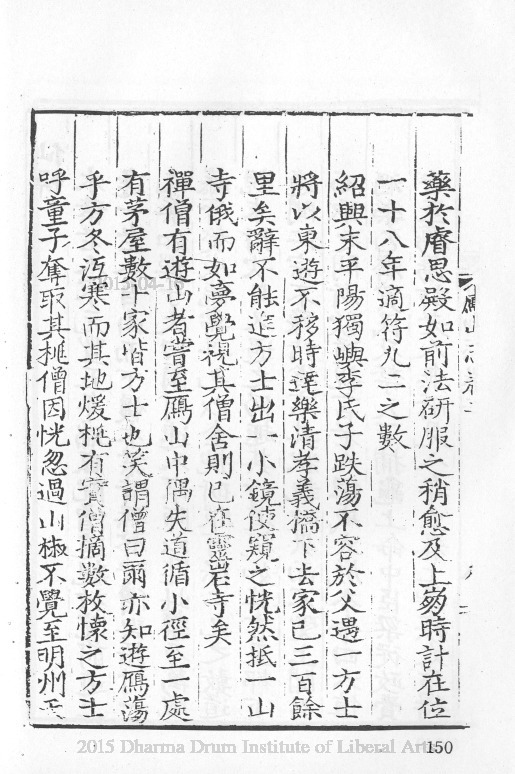 藥於睿思殿如前法研服之稍愈及上崩時計在位
一十八年適符九二之數
紹興末平陽獨嶼李氏子跌蕩不容於父遇一方士
將以東遊不移時達樂清孝義橋下去家已三百餘
里矣辭不能進方士出一小鏡使窺之恍然抵一山
寺俄而如夢覺視其僧舍則已在靈岩寺矣
禪僧有遊山者嘗至鴈山中偶失道循小徑至一處
有茅屋數十家皆方士也笑謂僧曰爾亦知遊鴈蕩
乎方冬沍寒而其地煖桃有實僧摘數枚懷之方士
呼童子奪取其桃僧因恍忽過山椒不覺至明州
2015 Dharma Drum Institute of Liberal Arts
150